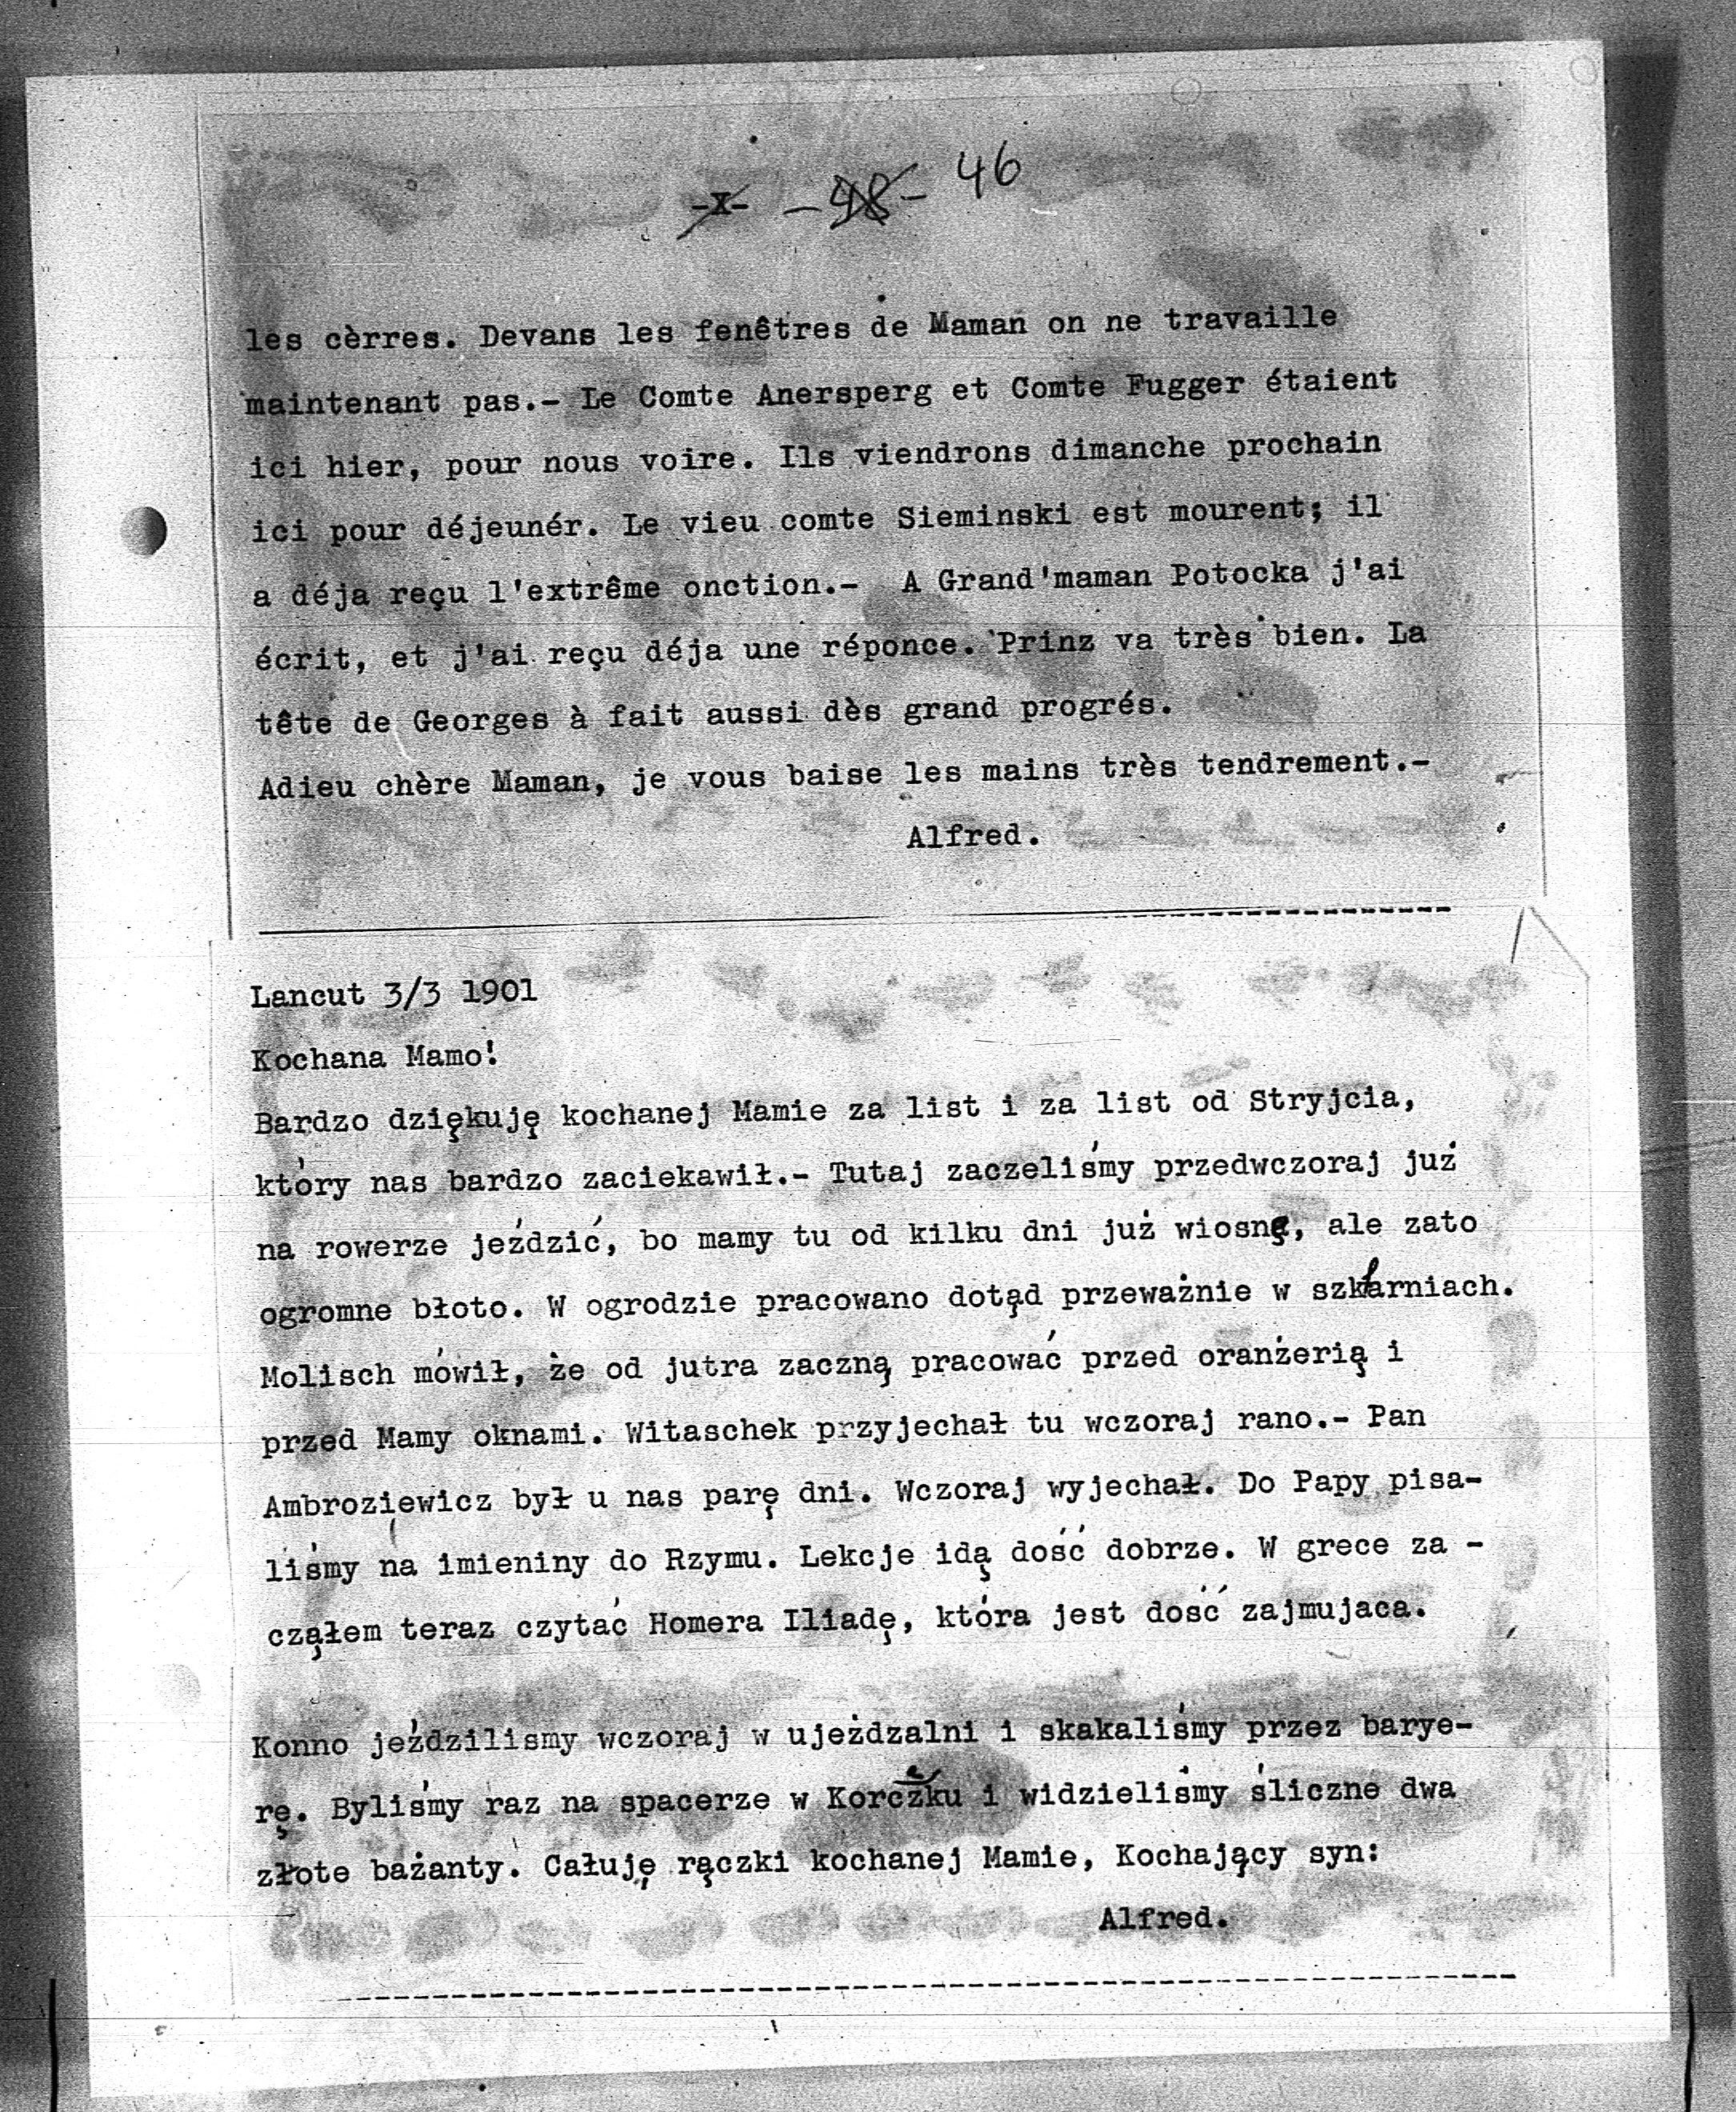 -x- -98- 46
les cèrres. Devans les fenêtres de Maman on ne travaille
maintenant pas.- Le Comte Anersperg et Comte Fugger étaient
ici hier, pour nous voire. Ils viendrons dimanche prochain
ici pour déjeunér. Le vieu comte Sieminski est mourent; il
a déja reçu l'extrême onction.- A Grand'maman Potocka j'ai
écrit, et j'ai reçu déja une réponce. Prinz va très bien. La
tête de Georges à fait aussi dès grand progrés.
Adieu chère Maman, je vous baise les mains très tendrement.-
Alfred.
Lancut 3/3 1901
Kochana Mamo!
Bardzo dziękuję kochanej Mamie za list i za list od Stryjcia,
który nas bardzo zaciekawił.- Tutaj zaczeliśmy przedwczoraj już
na rowerze jeździć, bo mamy tu od kilku dni już wiosnę, ale zato
ogromne błoto. W ogrodzie pracowano dotąd przeważnie w szklarniach.
Molisch mówił, że od jutra zaczną pracować przed oranżerią i
przed Mamy oknami. Witaschek przyjechał tu wczoraj rano.- Pan
Ambroziewicz był u nas parę dni. Wczoraj wyjechał. Do Papy pisa-
liśmy na imieniny do Rzymu. Lekcje idą dość dobrze. W grece za -
cząłem teraz czytać Homera Iliadę, która jest dość zajmujaca.
Konno jeździlismy wczoraj w ujeżdzalni i skakaliśmy przez barye-
rę. Byliśmy raz na spacerze w Korczku i widzieliśmy śliczne dwa
złote bażanty. Całuję rączki kochanej Mamie, Kochający syn:
Alfred.